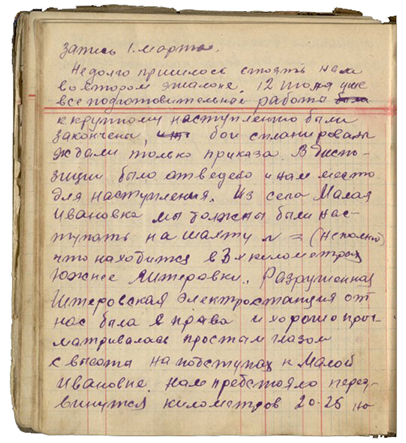 Запись 1. марта.
Недолго пришлось стоять нам
во втором эшалоне. 12 июля уже
все подготовительной работа была
к крупному наступлению были
закончена, бои спланированы
ждали только приказа. В диспо-
зиции было отведено и нам место
для наступления. Из села Малая
Ивановка мы должны были нас-
тупать на шахту № = (непомню)
что находится в 3х километрах
южнее Штеровки. Разрушенная
Штеровская электростанция от
нас была в права и хорошо прос-
матривалась простам глазом
с высота на подступах к Малой
Ивановке. Нам предстояло перед-
винутся километров 20-25 по